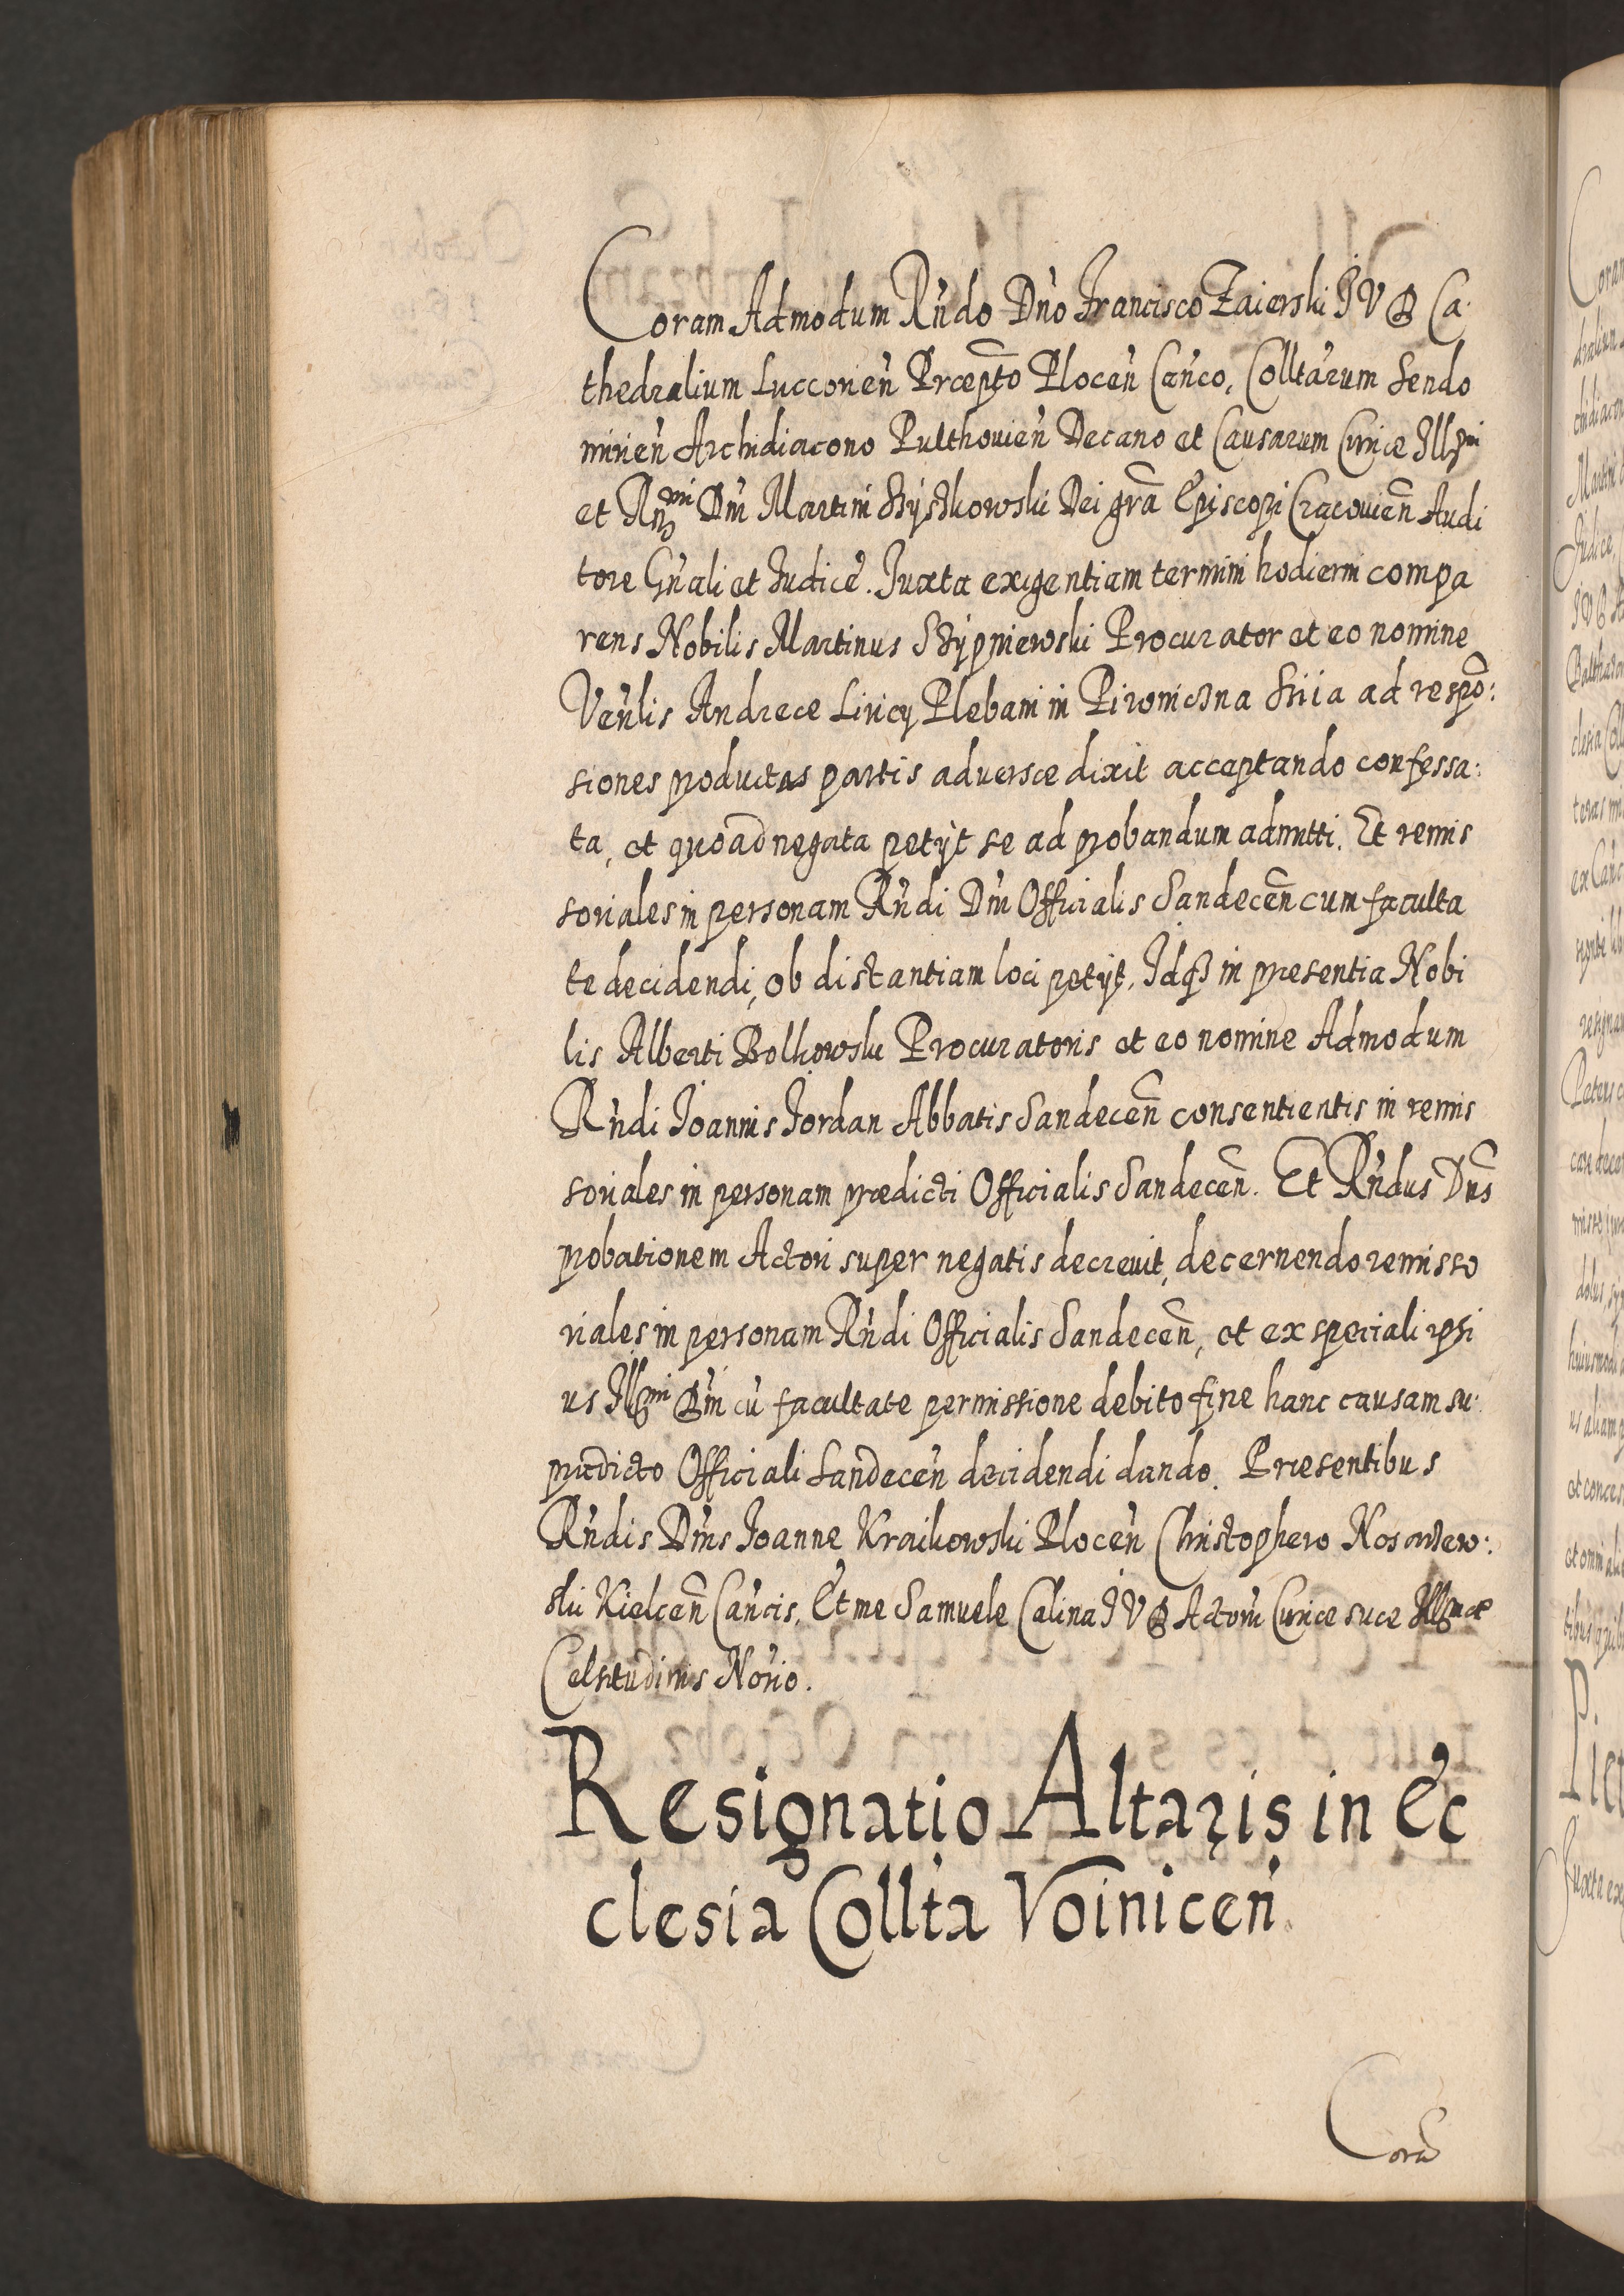 Coram Admodum Rndo Dno Francisco Zaierski I V D Ca
thedralium Lucconen Præpto Plocen Canco, Colltarum Sendo
mirien Archidiacono Pulthouien Decano et Causarum Curiæ Illmi
et Rmi Dni Martini Szyszkowski Dei gra Episcopi Cracouien Audi
tore Gnali et Iudice. Iuxta exigentiam termini hodierni compa
rens Nobilis Martinus Stypniewski Procurator et eo nomine
Venlis Andreæ Liricy Plebani in ad respo:
siones productas partis aduersæ dixit acceptando confessa:
ta, et quoad negata petijt se ad probandum admitti. Et remis
soriales in personam Rndi Dni Officialis Sandecen cum faculta
te decidendi, ob distantiam loci petijt. Idq in præsentia Nobi
lis Alberti Bolkowski Procuratoris et eo nomine Admodum
Rndi Ioannis Iordan Abbatis Sandecen consentientis in remis
soriales in personam prædicti Officialis Sandecen. Et Rndus Dns
probationem Actori super negatis decreuit, decernendo remisso
riales in personam Rndi Officialis Sandecen, et ex speciali ipsi
us Illmi Dni cu facultate permissione debito fine hanc causam su:
prædicto Officiali Sandecen decidendi dando. Præsentibus
Rndis Dnis Ioanne Kraikowski Plocen Christophero
ski Kielcen Cancis. Et me Samuele Calina I V D Actorum Curiæ suæ Illmæ
Celsitudinis Norio.
Resignatio Altaris in Ec
clesia Collta Voinicen
Cora